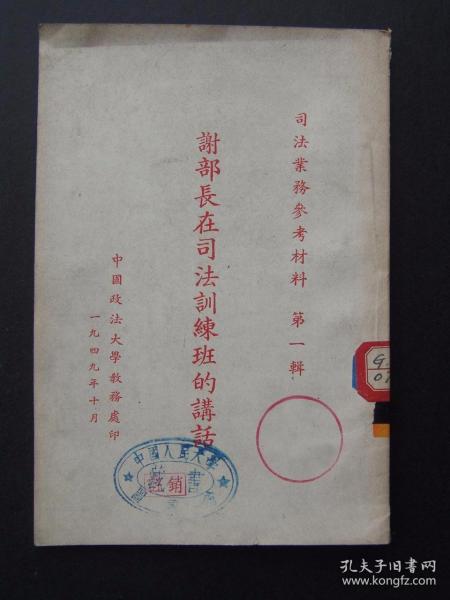 司法業務參考材料 第一輯
謝部長在司法訓練班的講話
中國政法大學教務處印
一九四九年十月
中國人民大學
銷
書
G
01
孔夫子旧书网
www.kongfz.com